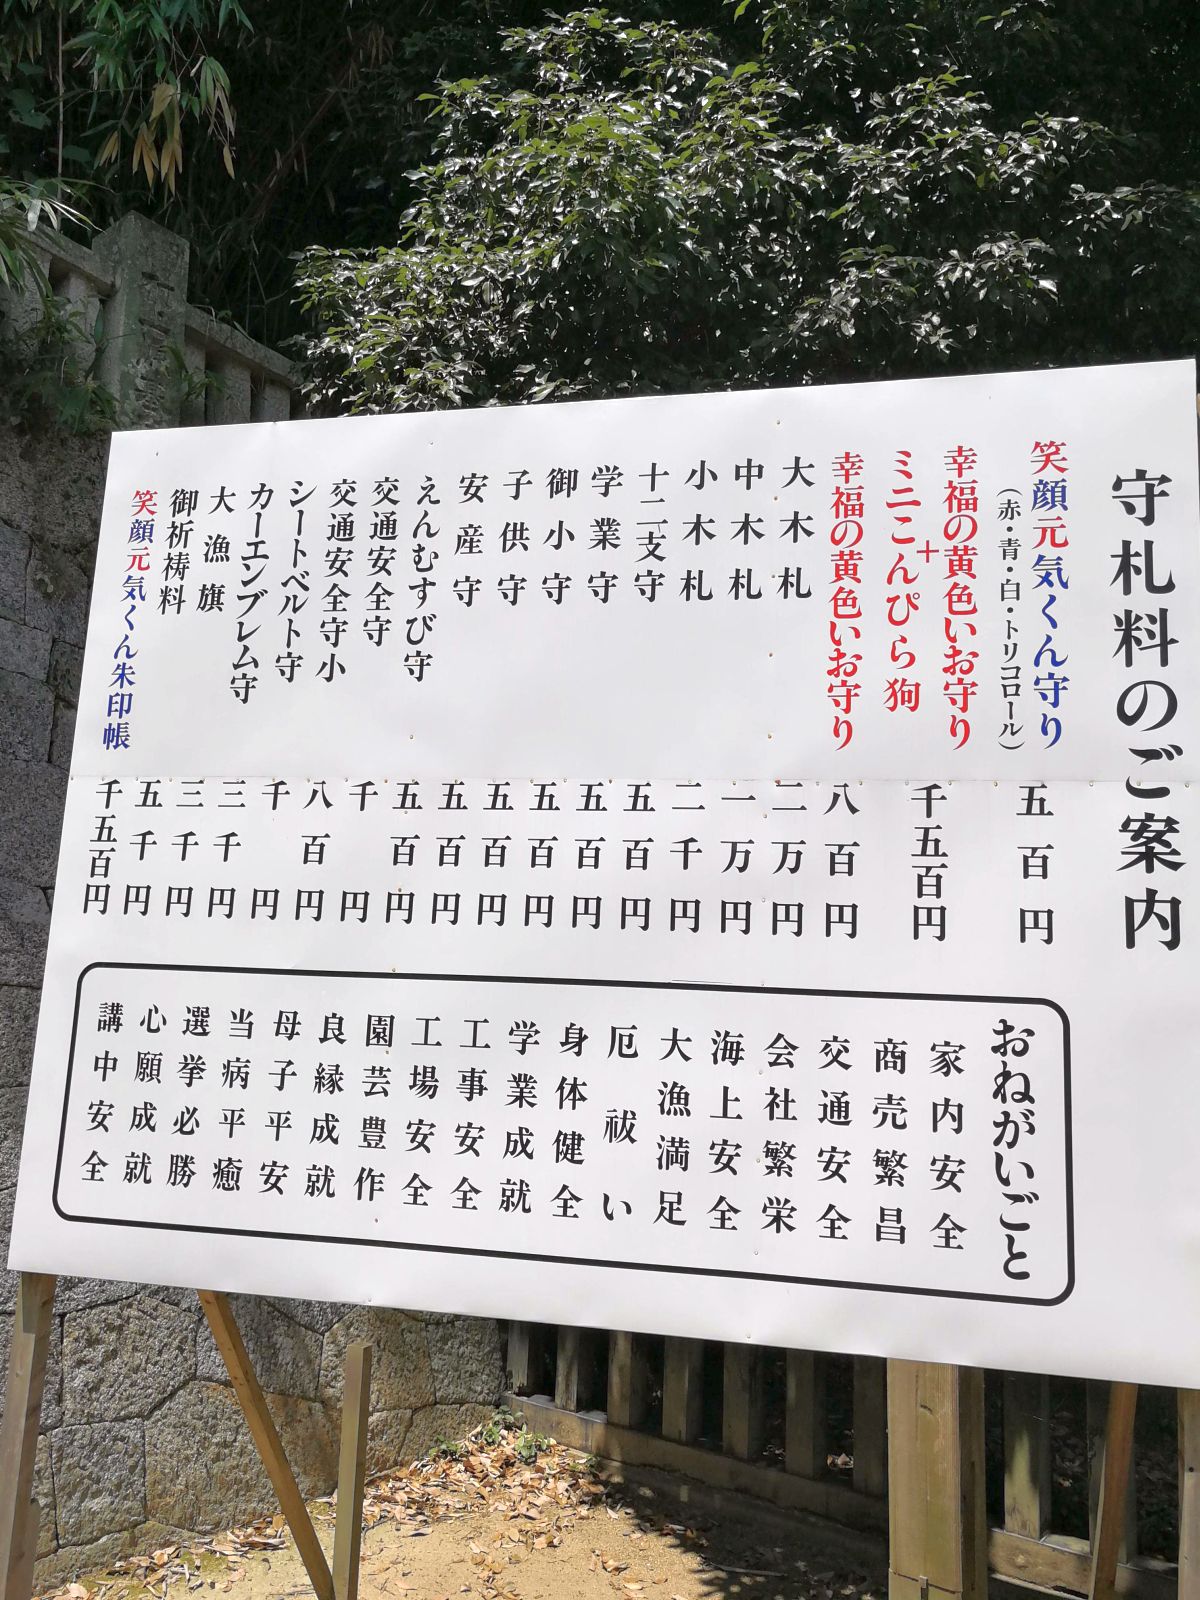 守札料のご案内
笑顔元気くん守り 五百円
（赤・青・白・トリコロール）
幸福の黄色いお守り
+
ミニこんぴら狗 千五百円
幸福の黄色いお守り 八百円
大木札 二万円
中木札 一万円
小木札 二千円
十二支守 五百円
学業守 五百円
御小守 五百円
子供守 五百円
安産守 五百円
えんむすび守 五百円
交通安全守 千円
交通安全守小 八百円
シートベルト守 千円
カーエンブレム守 三千円
大漁旗 三千円
御祈祷料 五千円
笑顔元気くん朱印帳 千五百円
おねがいごと
家内安全
商売繁昌
交通安全
会社繁栄
海上安全
大漁満足
厄祓い
身体健全
学業成就
工事安全
工場安全
園芸豊作
良縁成就
母子平安
当病平癒
選挙必勝
心願成就
講中安全